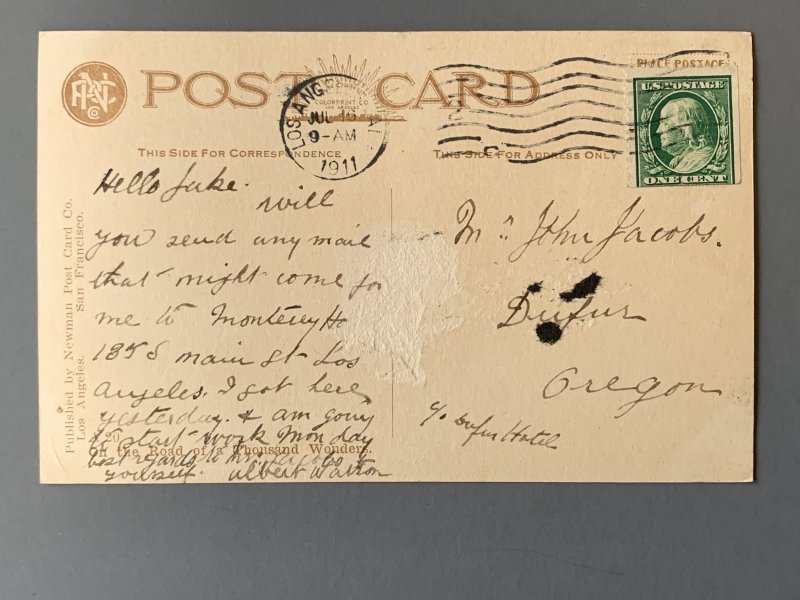 POST CARD
COLORPRINT CO
LOS ANGELES
LOS ANG
JUL 15
9-AM
1911
PLACE POSTAGE
U.S. POSTAGE
ONE CENT
THIS SIDE FOR CORRESPONDENCE
THIS SIDE FOR ADDRESS ONLY
Hello Jake.
will
you send any mail
that might come for
me to Monterey Ho
135 S main st Los
Angeles. I got here
yesterday. & am going
to start work Monday
best regards to Mrs Jacobs &
yourself. Albert Watson
Mr John Jacobs.
Dufur
Oregon
c/o Dufur Hotel
Published by Newman Post Card Co.
Los Angeles. San Francisco.
A20
On the Road of a Thousand Wonders.